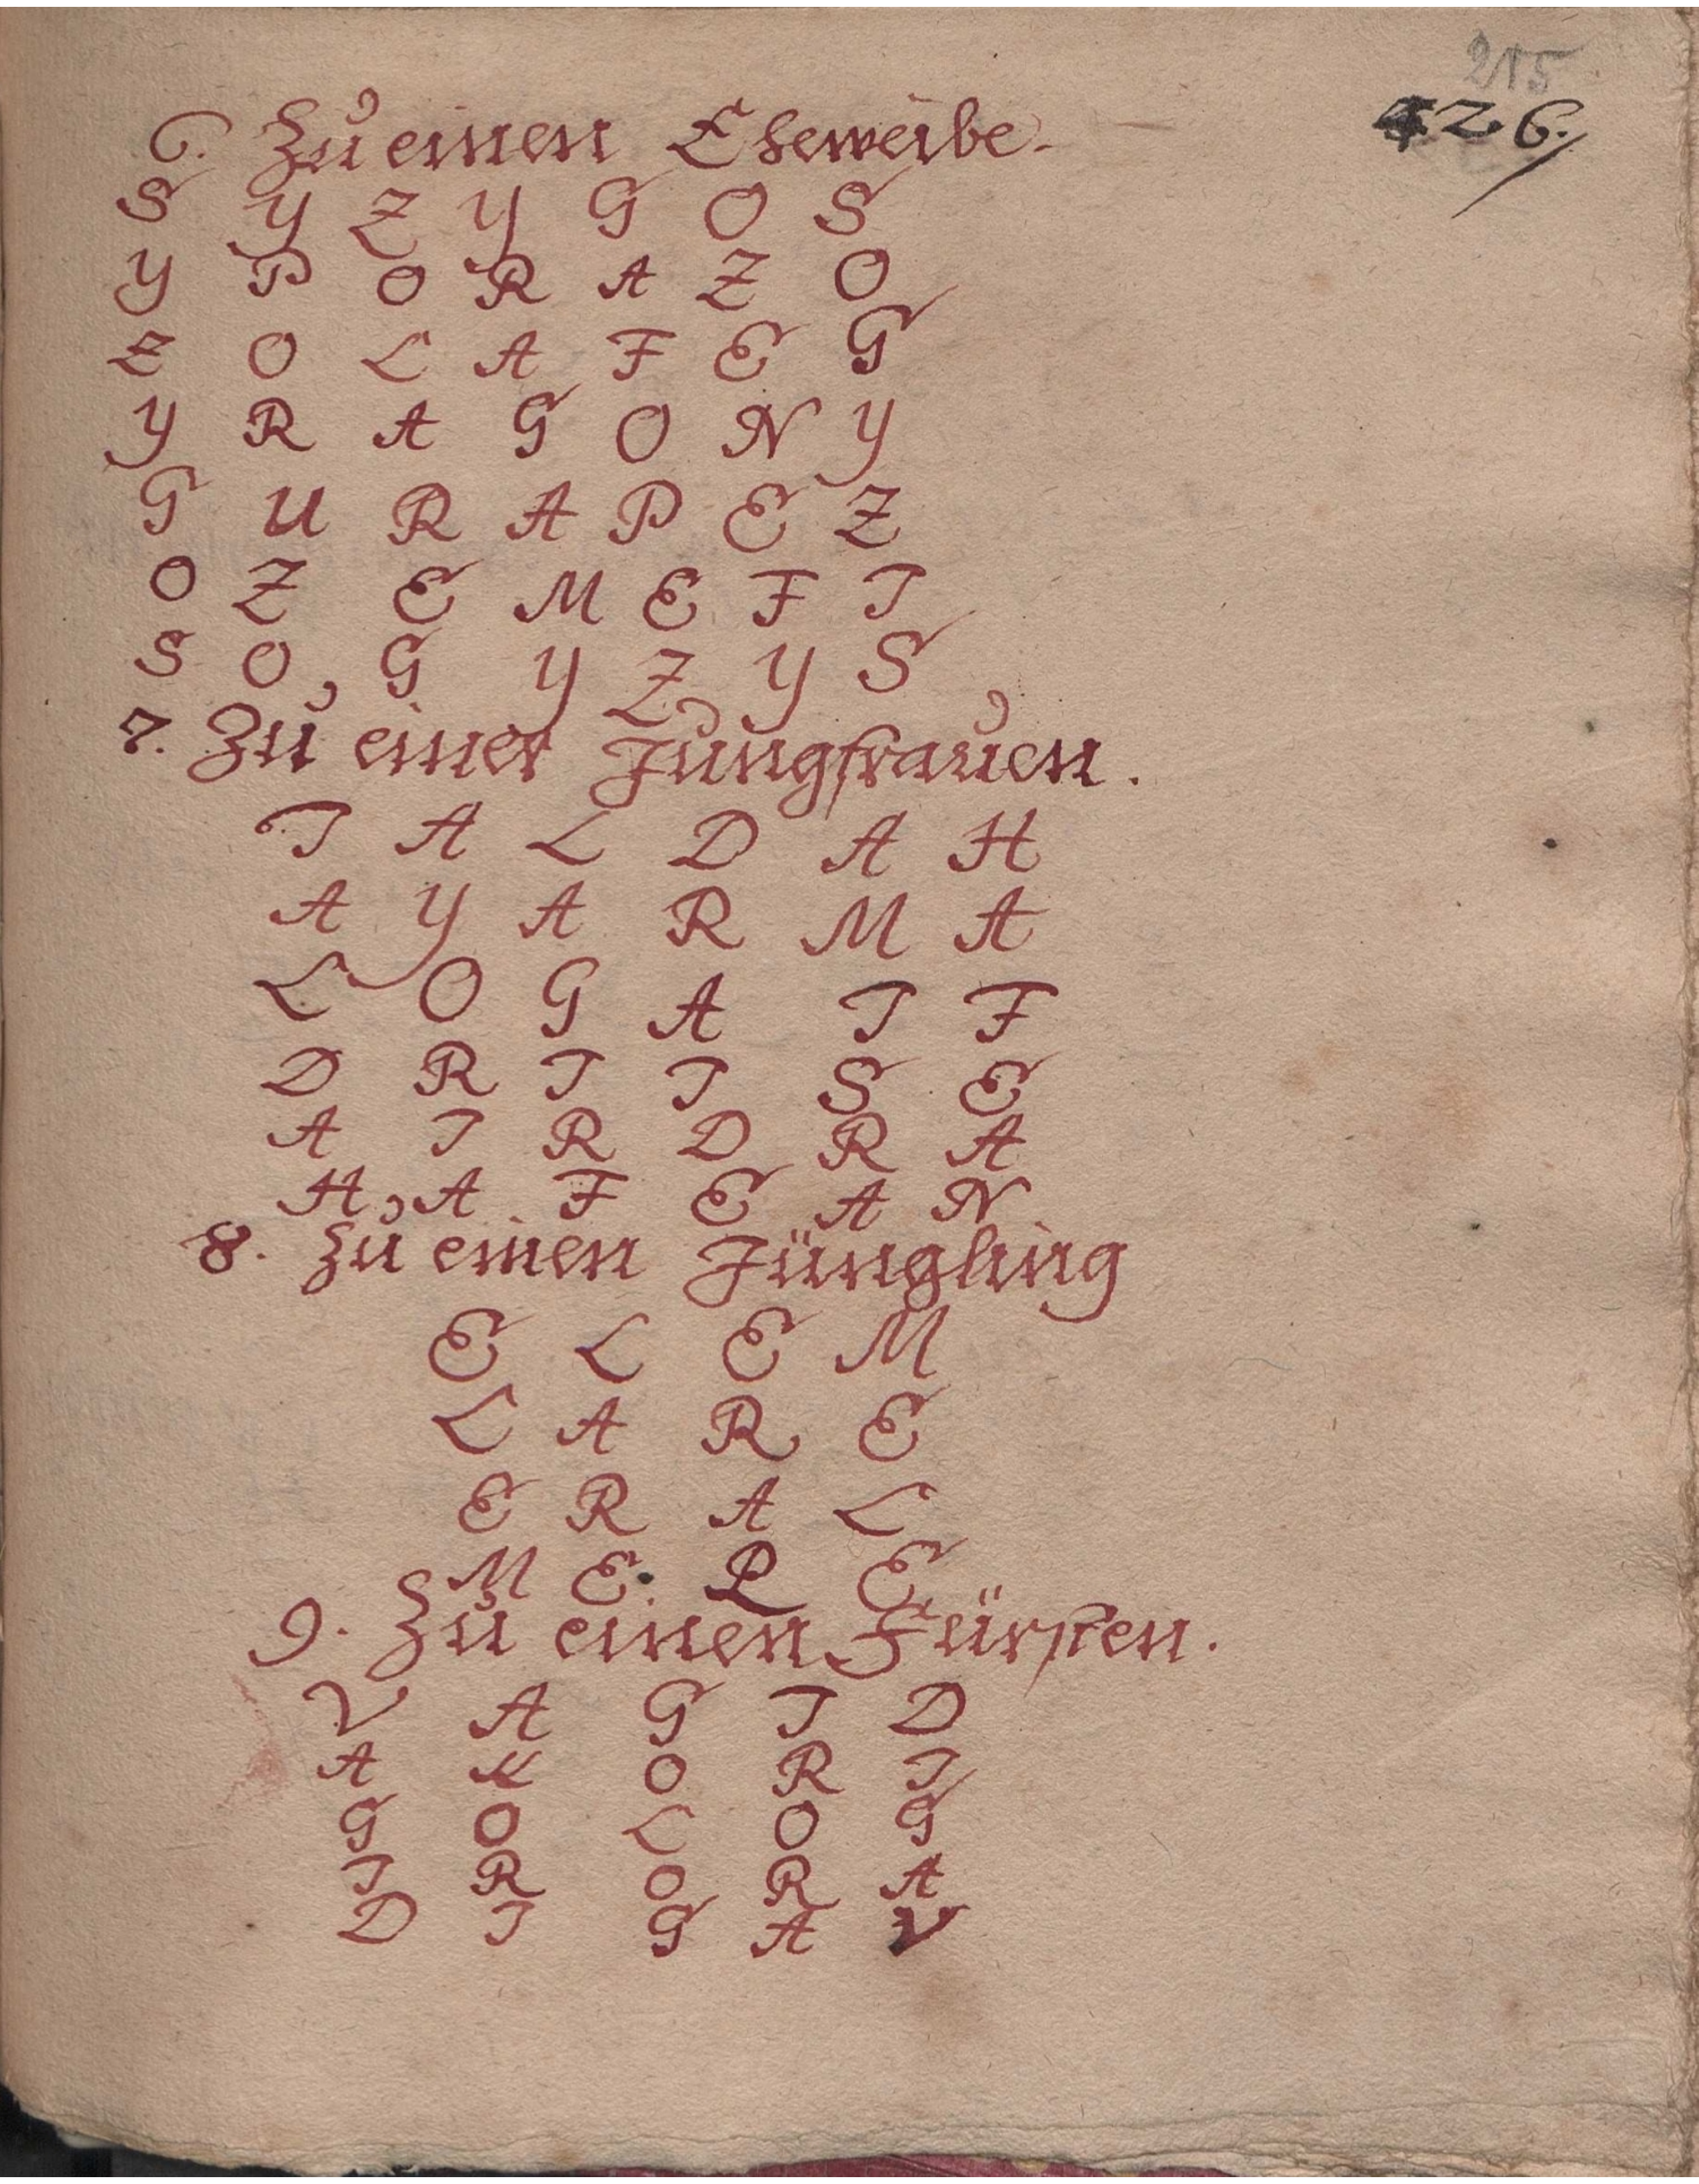 215
426.
6. Zu einen Eheweibe.
S Y Z Y G O S
Y P O R A Z O
Z O L A F E G
Y R A G O N Y
G U R A P E Z
O Z E M E F I
S O G Y Z Y S
7. Zu einer Jungfrauen.
I A L D A H
A Y A R M A
L O G A I F
D R I I S E
A I R D R A
H A F E A N
8. Zu einen Jüngling
E L E M
L A R E
E R A L
M E L E
9. Zu einen Fürsten.
V A G I D
A K O R I
G O L O G
I R O R A
D I G A V